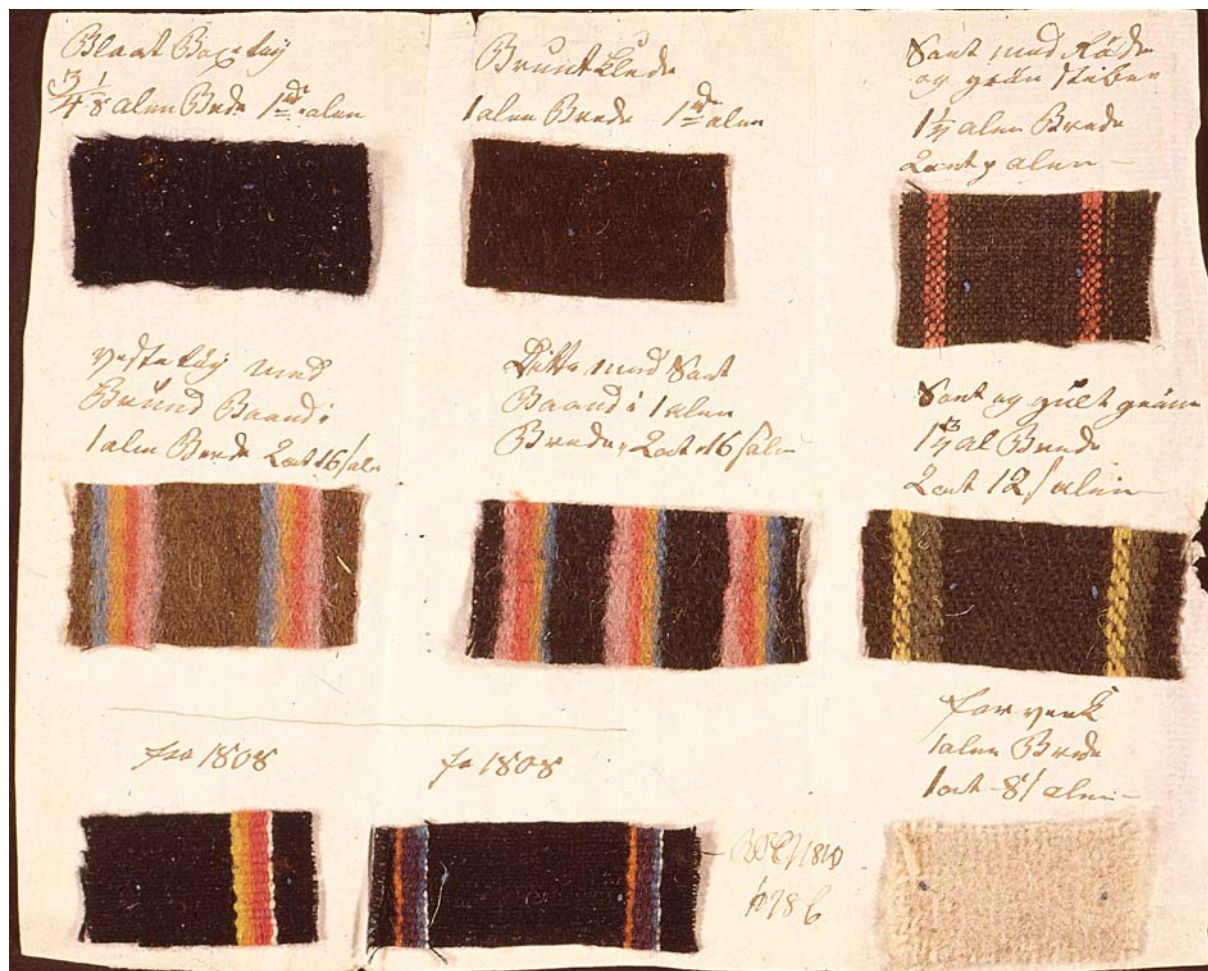 Blaat Box tøÿ
3/4 1/8 alen Brede 1 rd alen
Brunt Klæde
1 alen Brede 1 rd alen
Sort med Røde
og grøn striber
alen Brede
2 ort alen
vestetøÿ med
Bruund Baand i
1 alen Brede 2 ort 16 s alen
Ditto med Sort
Baand i 1 alen
Brede, 2 ort 16 s alen
Sort og guelt grøn
al Brede
2 ort 12 s alen
fra 1808
fo 1808
1 alen Brede
1 ort 8 s alen